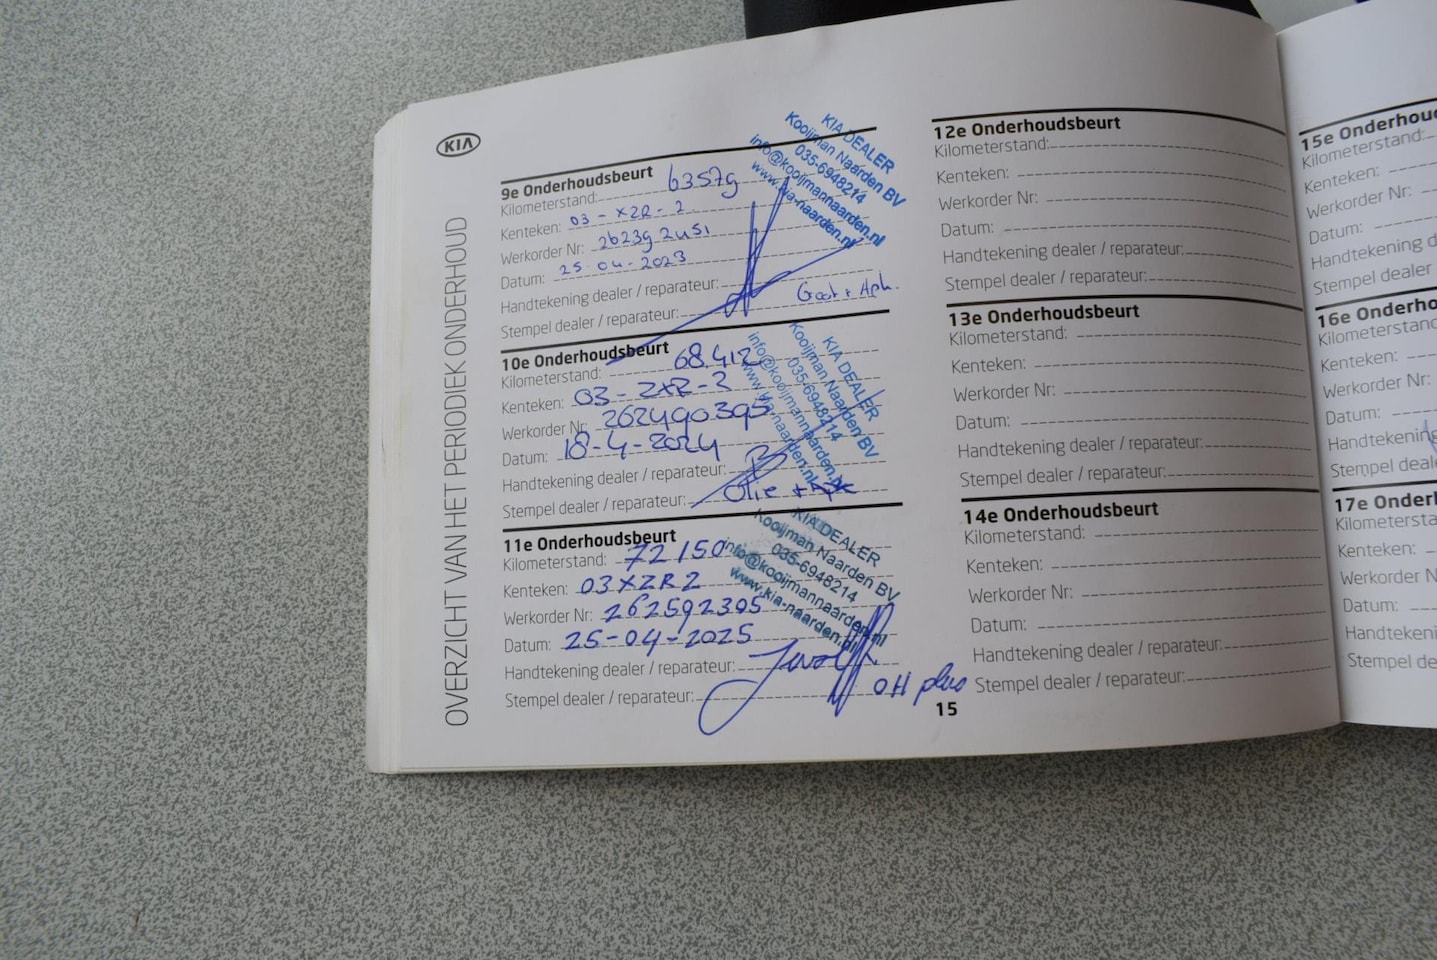 KIA
OVERZICHT VAN HET PERIODIEK ONDERHOUD
9e Onderhoudsbeurt
Kilometerstand: 63579
Kenteken: 03-XZR-2
Werkorder Nr:
Datum: 25-04-2023
Handtekening dealer / reparateur:
Stempel dealer / reparateur:
Groot + Aph.
KIA DEALER
Kooijman Naarden BV
035-6948214
info@kooijmannaarden.nl
www.kia-naarden.nl
10e Onderhoudsbeurt
Kilometerstand: 68.412
Kenteken: 03-ZXR-2
Werkorder Nr: 262490395
Datum: 18-4-2024
Handtekening dealer / reparateur:
Stempel dealer / reparateur: Olie +
KIA DEALER
Kooijman Naarden BV
035-6948214
info@kooijmannaarden.nl
www.kia-naarden.nl
11e Onderhoudsbeurt
Kilometerstand: 72150
Kenteken: 03XZR2
Werkorder Nr: 262592395
Datum: 25-04-2025
Handtekening dealer / reparateur:
Stempel dealer / reparateur:
OH plus
KIA DEALER
Kooijman Naarden BV
035-6948214
info@kooijmannaarden.nl
www.kia-naarden.nl
15
12e Onderhoudsbeurt
Kilometerstand:
Kenteken:
Werkorder Nr:
Datum:
Handtekening dealer / reparateur:
Stempel dealer / reparateur:
13e Onderhoudsbeurt
Kilometerstand:
Kenteken:
Werkorder Nr:
Datum:
Handtekening dealer / reparateur:
Stempel dealer / reparateur:
14e Onderhoudsbeurt
Kilometerstand:
Kenteken:
Werkorder Nr:
Datum:
Handtekening dealer / reparateur:
Stempel dealer / reparateur:
15e Onderhou
Kilometerstand:
Kenteken:
Werkorder Nr:
Datum:
Handtekening d
Stempel dealer
16e Onderho
Kilometerstand
Kenteken:
Werkorder Nr:
Datum:
Handtekening
Stempel deal
17e Onderh
Kilometersta
Kenteken:
Werkorder N
Datum:
Handtekeni
Stempel de